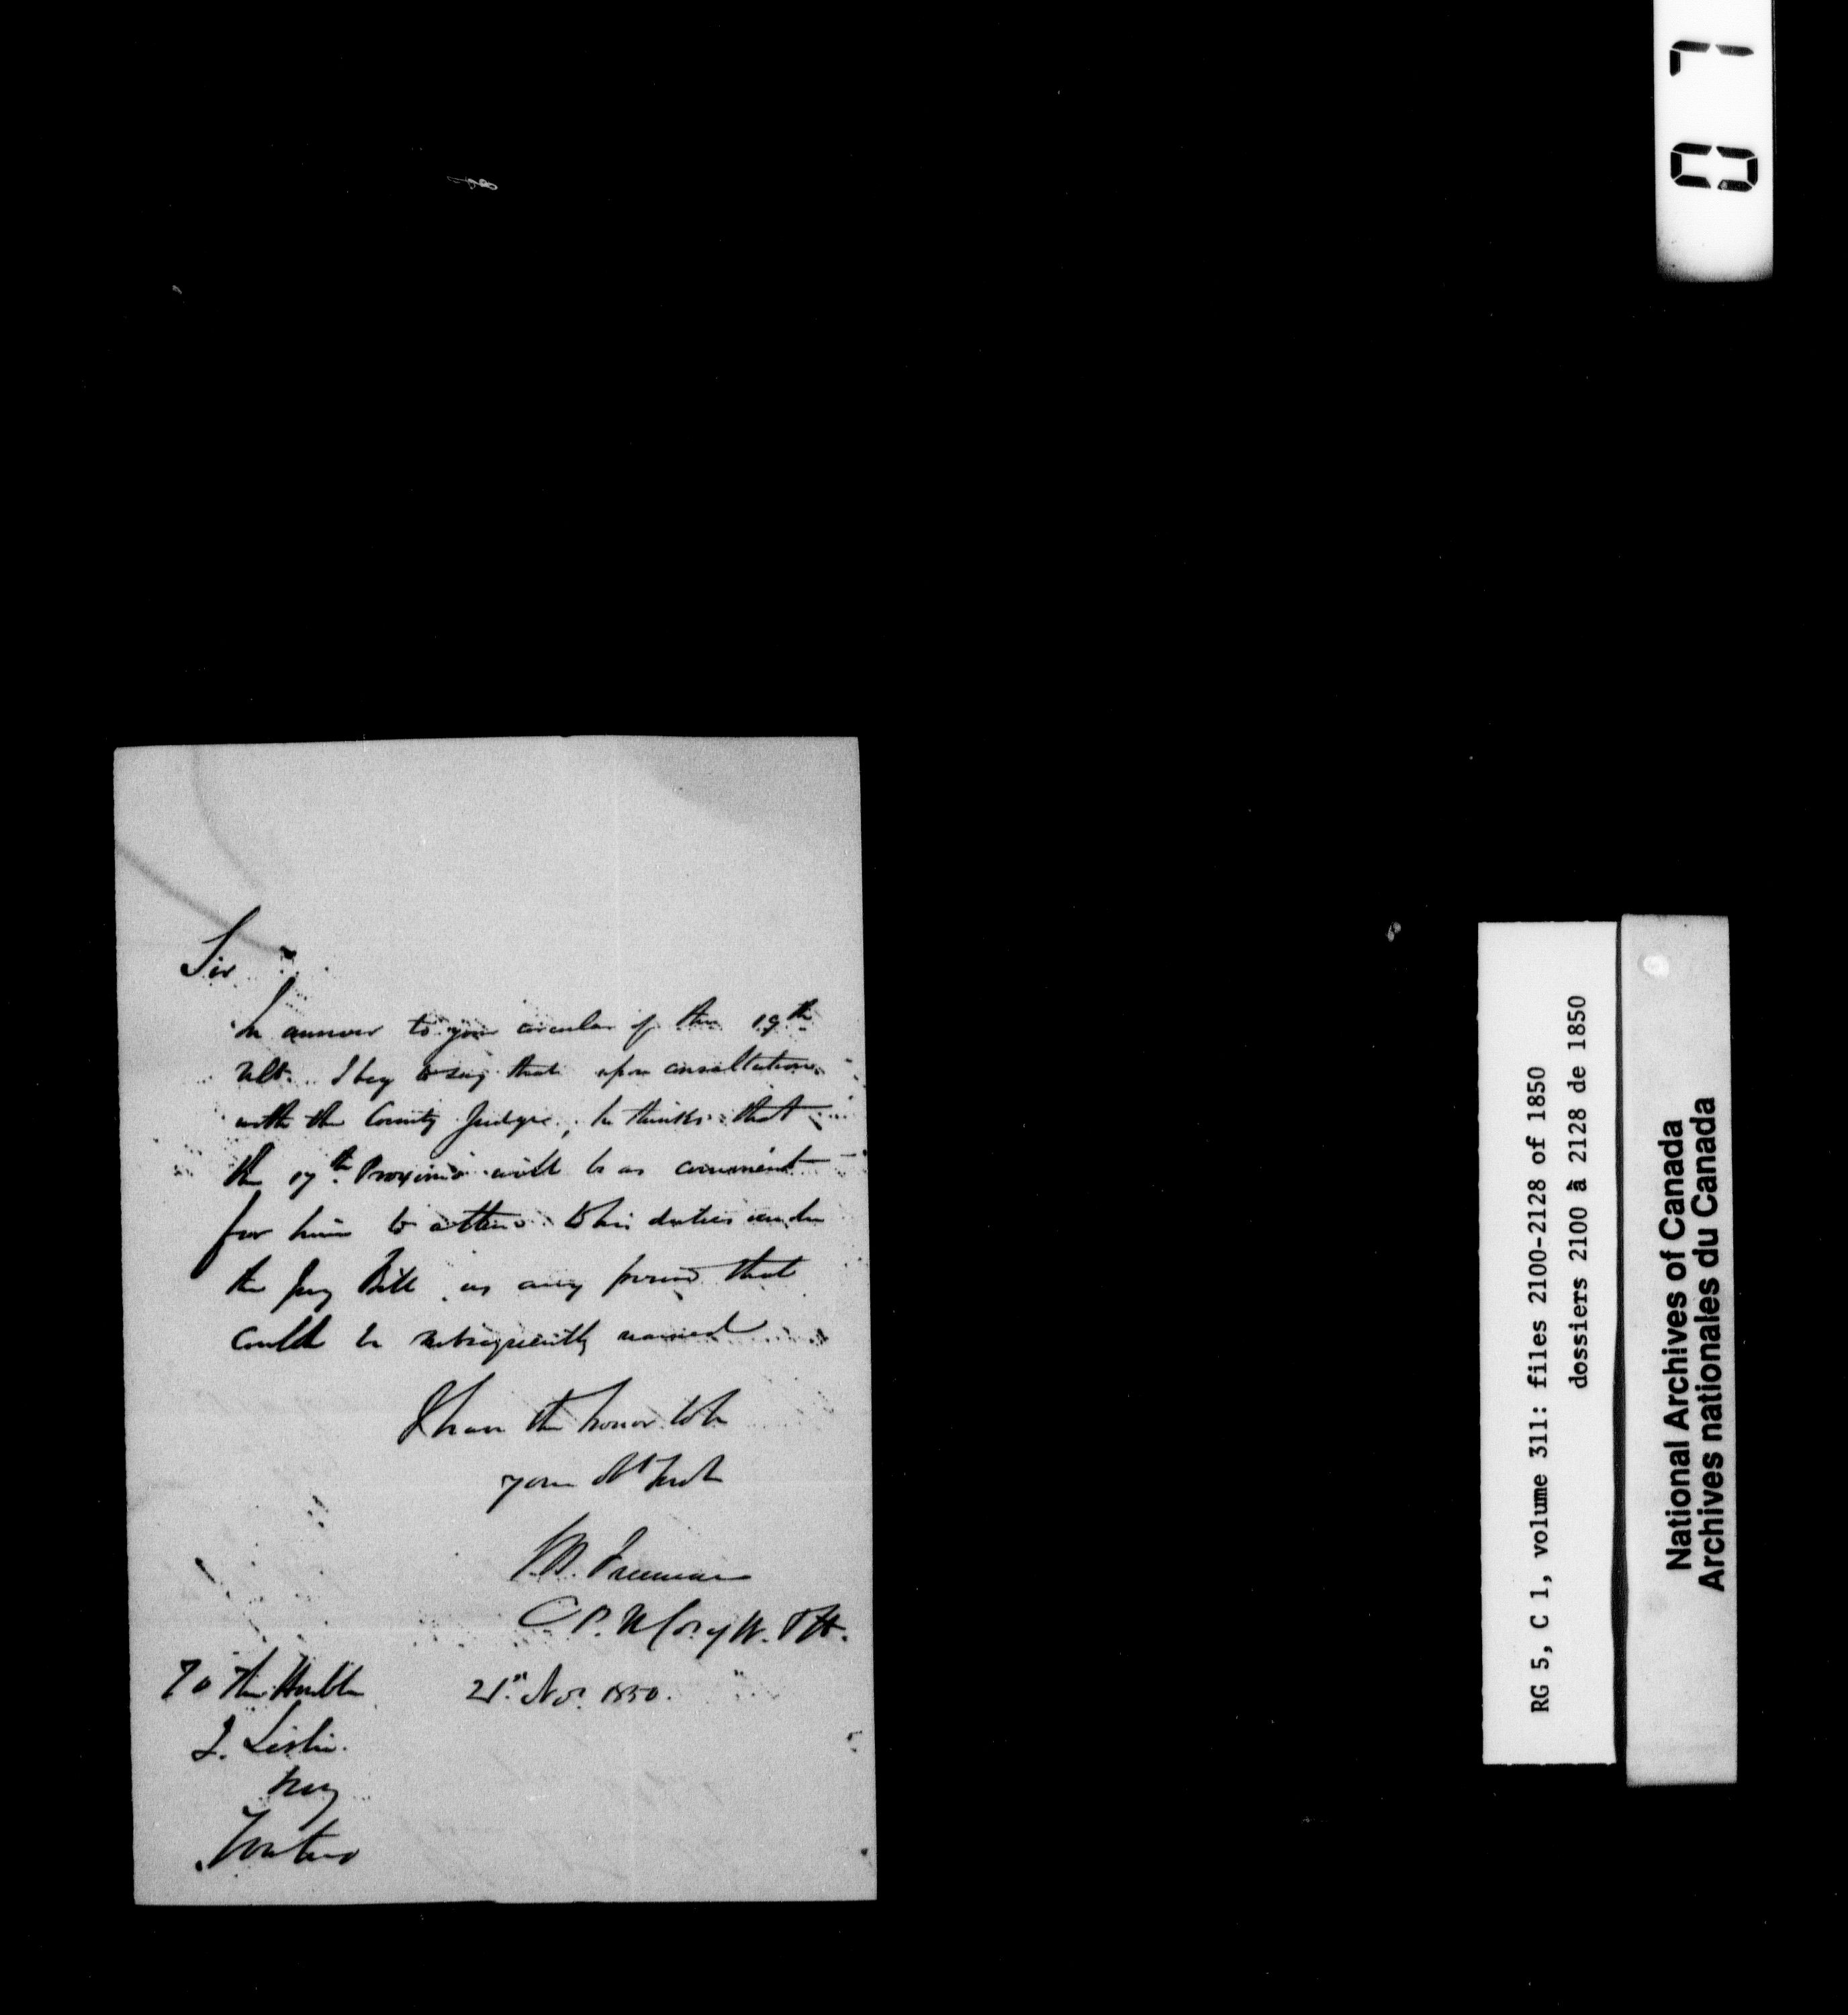 Sir
In answer to your circular of the 19th
Ult. I beg to say that upon consultation
with the County Judge, he thinks that
the 17th Proximo will be as convenient
for him to attend to his duties under
the Jury Bill as any period that
could be subsequently named
I have the honor to be
your Obt Servt
Freeman
C. P. W. T. H.
To The Honble
J. Leslie
Toronto
21st Nov. 1850.
07
RG 5, C 1, volume 311: files 2100-2128 of 1850
dossiers 2100 à 2128 de 1850
National Archives of Canada
Archives nationales du Canada